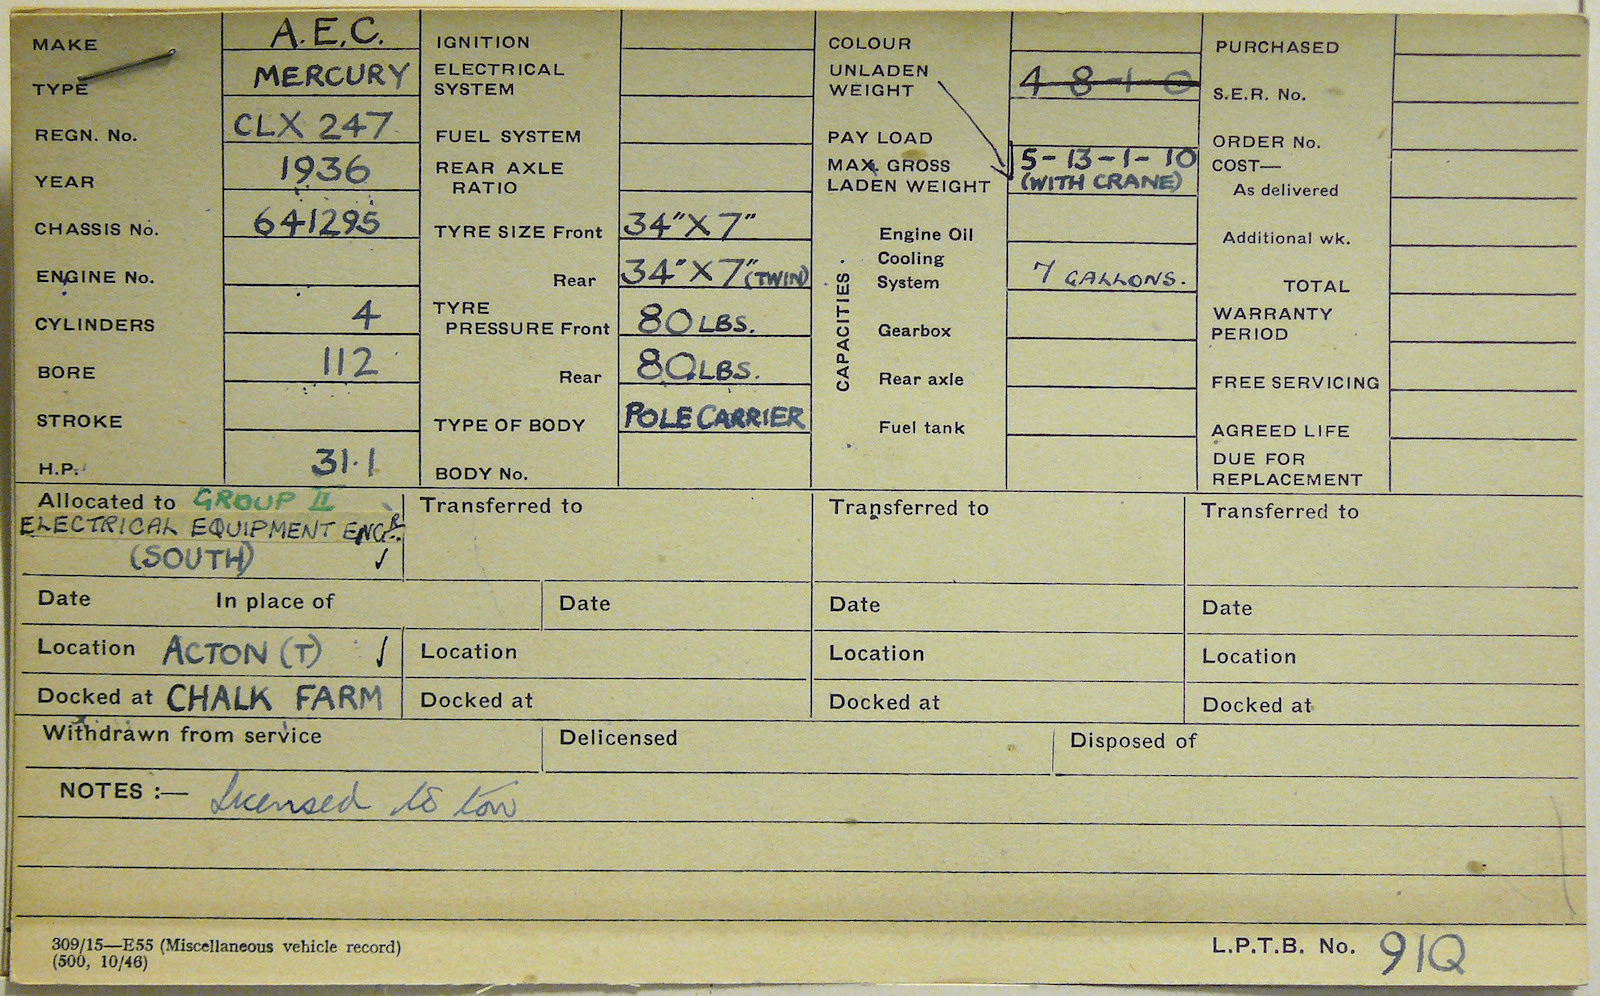 MAKE A.E.C.
TYPE MERCURY
REGN. No. CLX 247
YEAR 1936
CHASSIS No. 641295
ENGINE No.
CYLINDERS 4
BORE 112
STROKE
H.P. 31·1
IGNITION
ELECTRICAL
SYSTEM
FUEL SYSTEM
REAR AXLE
RATIO
TYRE SIZE Front 34" X 7"
Rear 34" X 7" (TWIN)
TYRE
PRESSURE Front 80 LBS.
Rear 80 LBS.
TYPE OF BODY POLE CARRIER
BODY No.
COLOUR
UNLADEN
WEIGHT 4-8-1-0
PAY LOAD
MAX. GROSS 5-13-1-10
LADEN WEIGHT (WITH CRANE)
CAPACITIES.
Engine Oil
Cooling
System 7 GALLONS.
Gearbox
Rear axle
Fuel tank
PURCHASED
S.E.R. No.
ORDER No.
COST—
As delivered
Additional wk.
TOTAL
WARRANTY
PERIOD
FREE SERVICING
AGREED LIFE
DUE FOR
REPLACEMENT
Allocated to GROUP II
ELECTRICAL EQUIPMENT ENGR.
(SOUTH) ✓
Transferred to
Transferred to
Transferred to
Date In place of
Date
Date
Date
Location ACTON (T) ✓
Location
Location
Location
Docked at CHALK FARM
Docked at
Docked at
Docked at
Withdrawn from service
Delicensed
Disposed of
NOTES :— Licensed to tow
309/15—E55 (Miscellaneous vehicle record)
(500, 10/46)
L.P.T.B. No. 91Q